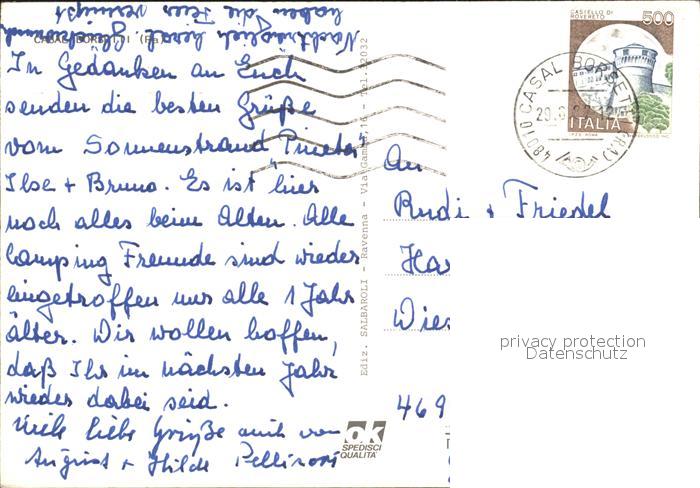 CASAL BORSETTI (Ra)
Nachträglich herzl. Glückwunsch
haben die Feier vermißt
In Gedanken an Euch
senden die besten Grüße
vom Sonnenstrand "Pineta"
Ilse + Bruno. Es ist hier
noch alles beim Alten. Alle
Camping Freunde sind wieder
eingetroffen nur alle 1 Jahr
älter. Wir wollen hoffen,
daß Ihr im nächsten Jahr
wieder dabei seid.
Viele liebe Grüße auch von
August + Hilde
Ediz. SALBAROLI - Ravenna - Via
ok
SPEDISCI
QUALITA'
CASTELLO DI
ROVERETO
500
ITALIA
48010 CASAL BORSETTI (RA)
An
Rudi + Friedel
Ha
Wies
469
privacy protection
Datenschutz